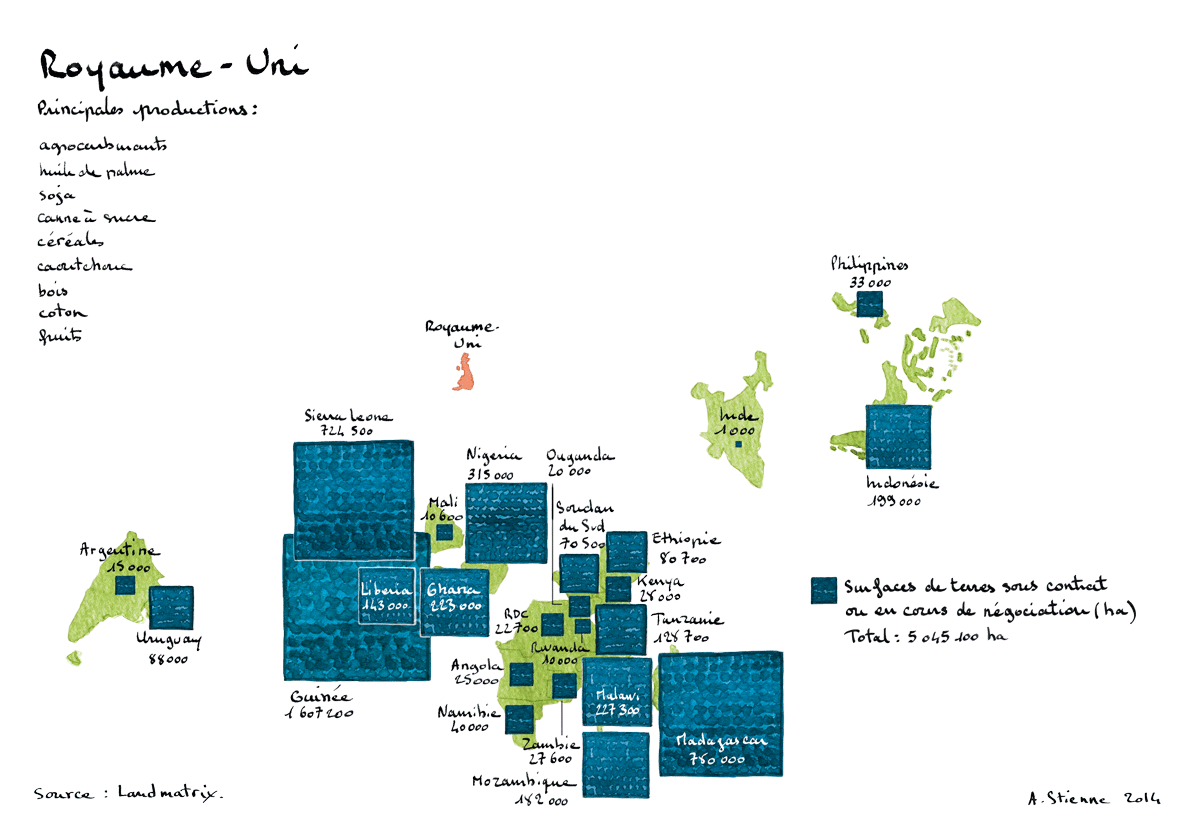 Royaume-Uni
Principales productions:
agrocarburants
huile de palme
soja
canne à sucre
céréales
caoutchouc
bois
coton
fruits
Philippines
33 000
Royaume-
Uni
Inde
1 000
Indonésie
199 000
Sierra Leone
724 500
Nigeria
315 000
Ouganda
20 000
Mali
10 600
Soudan
du Sud
70 500
Ethiopie
80 700
Kenya
28 000
Argentine
15 000
Uruguay
88 000
Liberia
143 000
Ghana
223 000
RDC
22 700
Tanzanie
128 700
Rwanda
10 000
Angola
25 000
Guinée
1 607 200
Namibie
40 000
Malawi
227 300
Madagascar
780 000
Zambie
27 600
Mozambique
182 000
Surfaces de terres sous contrat
ou en cours de négociation (ha)
Total : 5 045 100 ha
Source : Landmatrix.
A. Stienne 2014